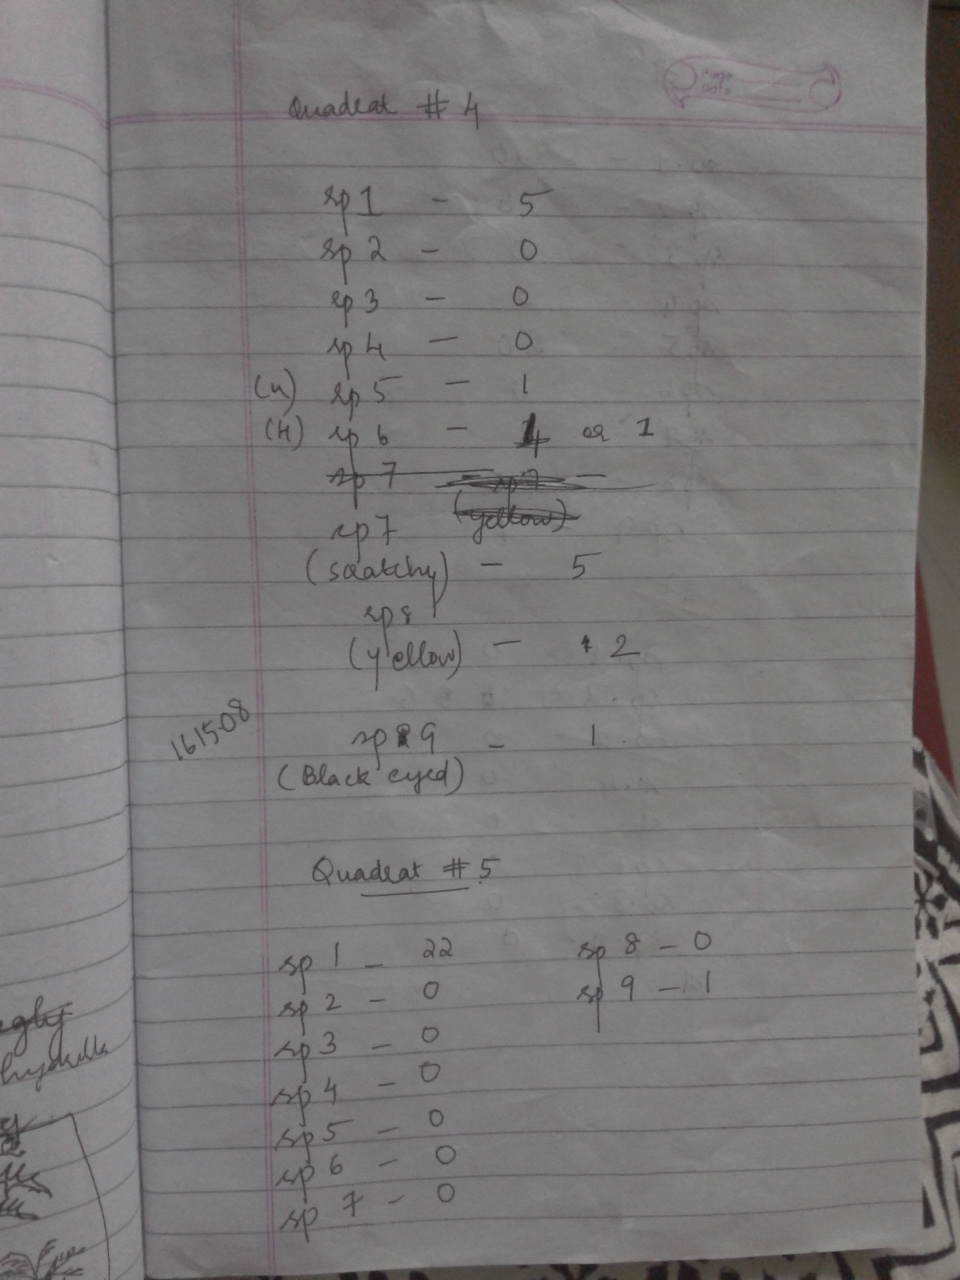 Page
Date
Quadrat # 4
sp 1 - 5
sp 2 - 0
sp 3 - 0
sp 4 - 0
sp 5 - 1
(H) sp 6 - 4 or 1
sp 7 sp 7
(yellow)
sp 7
(scratchy) - 5
sp 8
(yellow) - 2
161508
sp 9 - 1
(Black eyed)
Quadrat # 5
sp 1 - 22
sp 2 - 0
sp 3 - 0
sp 4 - 0
sp 5 - 0
sp 6 - 0
sp 7 - 0
sp 8 - 0
sp 9 - 1